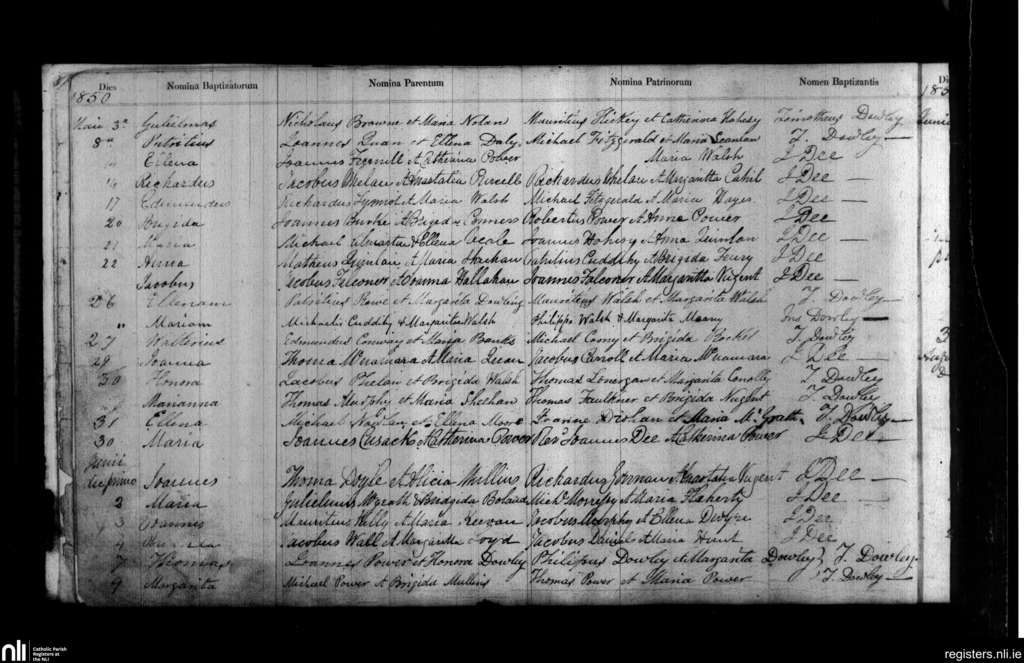 Dies Nomina Baptizatorum Nomina Parentum Nomina Patrinorum Nomen Baptizantis Di
1850 185
Maii 3ª Gulielmus Nicholaus Browne et Maria Nolan Mauritius Hickey et Catherina Hahesy Timotheus Dowley Junii
8ª Patritius Joannes Quan et Ellena Daly Michael Fitzgerald et Maria Scanlan T. Dowley
Ellena Joannes et Catherina Power Maria Walsh J Dee
14 Richardus Jacobus Whelan et Anastatia Purcell Richardus Whelan et Margaritta Cahil J Dee
17 Edmundus Richardus et Maria Walsh Michael Fitzgerald et Maria Hayes J Dee
20 Brigida Joannes Burke et Brigida Conners Robertus Power et Anna Power J Dee
21 Maria Michael et Ellena Joannes Hahesy et Anna Quinlan J Dee
22 Anna Matheus Quinlan et Maria Cuddihy et Brigida J Dee
Jacobus Jacobus Falconer et Joanna Hallahan Joannes Falconer et Margaritta Nugent J Dee
26 Ellenam Patritius Rowe et Margarita Dowling Mauritius Walsh et Margarita Walsh T. Dowley
" Mariam Michaelis Cuddihy & Margarita Walsh Philippi Walsh & Margarita Dowley
27 Walterius Edmundus Conway et Maria Banks Michael et Brigida T. Dowley
29 Joanna Thoma McNamara et Maria Jacobus Carroll et Maria McNamara J Dee
30 Honora Jacobus Phelan et Brigida Walsh Thomas Lonergan et Margarita Conolly T. Dowley
Marianna Thomas Murphy et Maria Sheehan Thomas Faulkner et Brigida Nugent T. Dowley
31 Ellena Michael et Ellena Moore et Maria McGrath T. Dowley
30 Maria Joannes Cusack et Catherina Power Revd Joannes Dee et Catherina Power J Dee
Junii
die primo Joannes Thoma Doyle et Alicia Mullins Richardus Gorman et Anastatia Nugent J Dee
2 Maria Gulielmus McGrath & Bridgida Boland Michl Morrissy et Maria Flaherty J Dee
3 Joannes Mauritius Kelly et Maria Keevan Jacobus Murphy et Ellena Dwyre J Dee
4 Jacobus Wall et Margaretta Foyd Jacobus Daniel et Maria Hunt J Dee
7 Thomas Joannes Power et Honora Dowley Philippus Dowley et Margarita Dowley T. Dowley
9 Margarita Michael Power et Brigida Mullins Thomas Power et Maria Power T. Dowley
nli Catholic Parish Registers at the NLI
registers.nli.ie